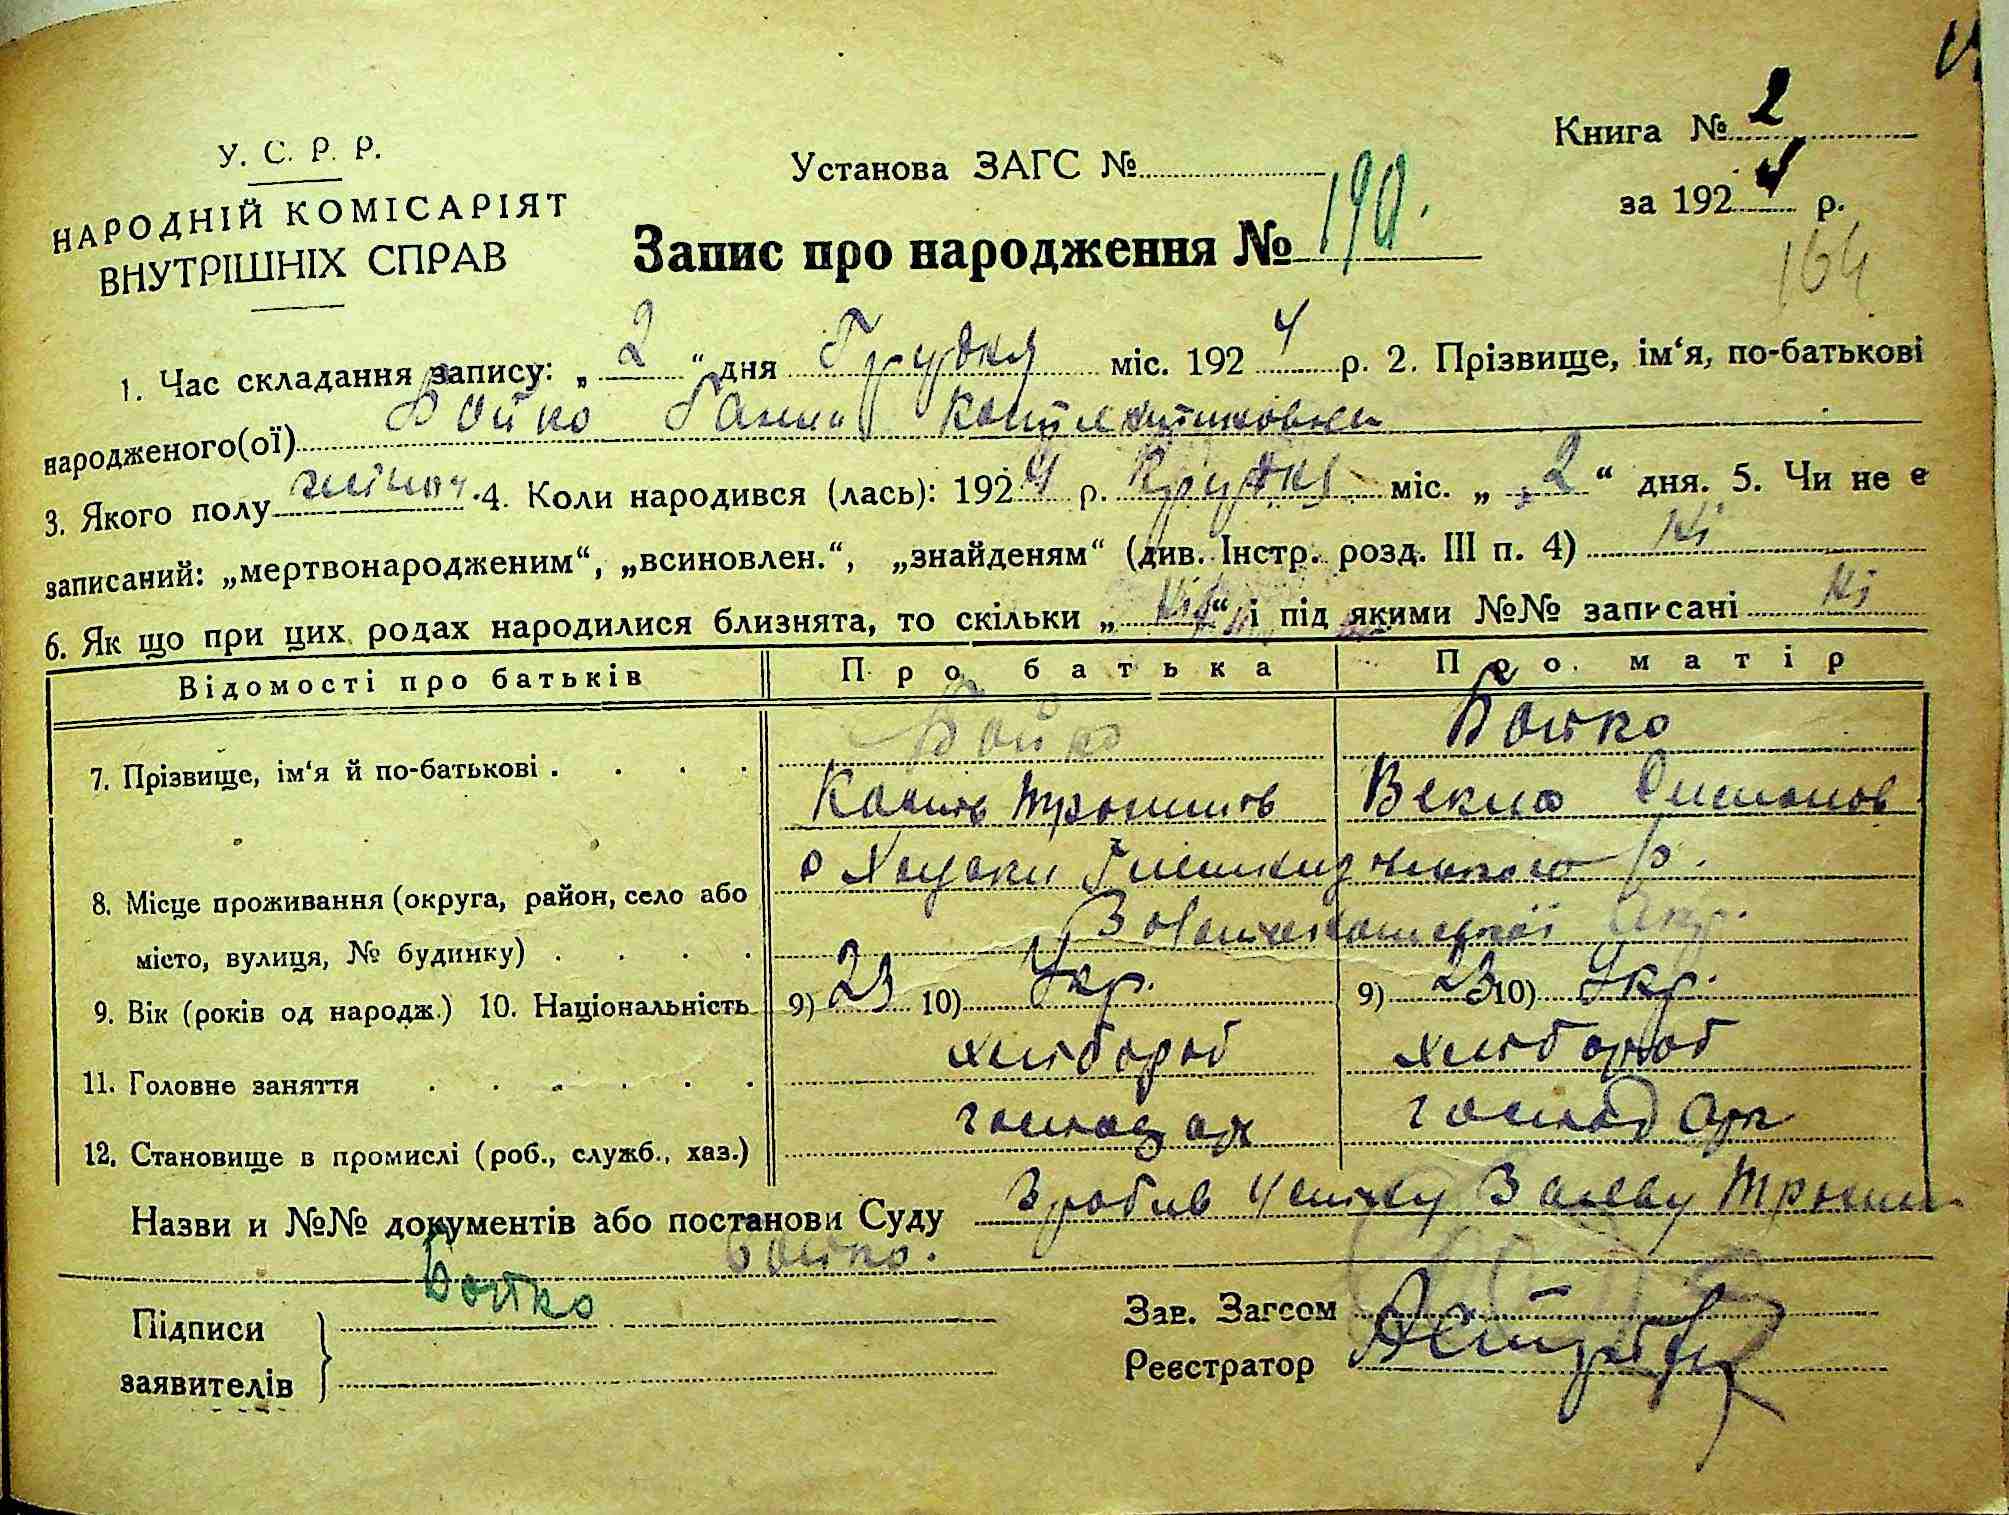 У. С. Р. Р.
НАРОДНІЙ КОМІСАРІЯТ
ВНУТРІШНІХ СПРАВ
Установа ЗАГС №
Книга № 2
за 1924 р.
164
Запис про народження № 190.
1. Час складання запису: „ 2 “ дня Грудня міс. 1924 р. 2. Прізвище, ім‘я, по-батькові
народженого(ої) Бойко Ганна
3. Якого полу жіноч. 4. Коли народився (лась): 1924 р. Грудня міс. „ 2 “ дня. 5. Чи не є
записаний: „мертвонародженим“, „всиновлен.“, „знайденям“ (див. Інстр. розд. III п. 4) Ні
6. Як що при цих родах народилися близнята, то скільки „ Ні “ і під якими №№ записані Ні
Відомості про батьків Про батька Про матір
7. Прізвище, ім‘я й по-батькові . . . . Бойко Бойко
Трохимов Векла
8. Місце проживання (округа, район, село або
місто, вулиця, № будинку) . . . . Окр.
9. Вік (років од народж.) 10. Національність 9) 23 10) Укр. 9) 23 10) Укр.
11. Головне заняття . . . . . . хлібороб хлібороб
12. Становище в промислі (роб., служб., хаз.) господар господар
Назви и №№ документів або постанови Суду Зробив Заяву Трохим
Бойко.
Підписи
заявителів
Бойко
Зав. Загсом
Реєстратор